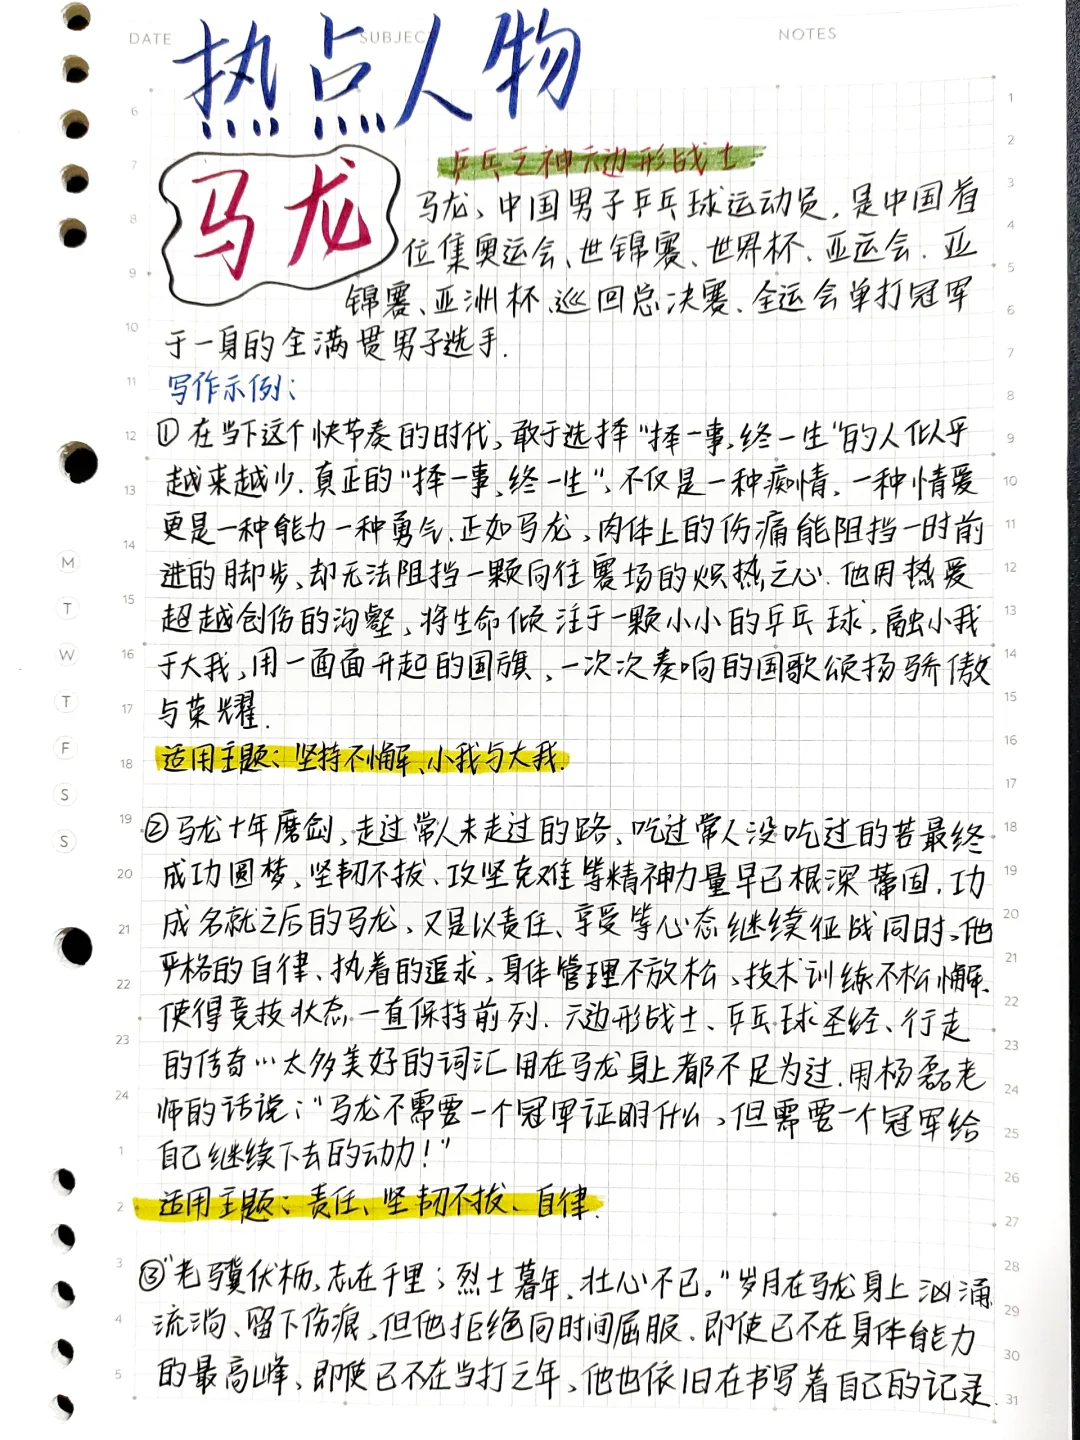 DATE SUBJECT NOTES
热点人物
马龙
乒乓之神六边形战士
马龙、中国男子乒乓球运动员，是中国首
位集奥运会、世锦赛、世界杯、亚运会、亚
锦赛、亚洲杯、巡回总决赛、全运会单打冠军
于一身的全满贯男子选手.
写作示例：
①在当下这个快节奏的时代，敢于选择“择一事，终一生”的人似乎
越来越少.真正的“择一事，终一生”，不仅是一种痴情，一种情爱
更是一种能力一种勇气.正如马龙，肉体上的伤痛能阻挡一时前
进的脚步，却无法阻挡一颗向往赛场的炽热之心.他用热爱
超越创伤的沟壑，将生命倾注于一颗小小的乒乓球，融小我
于大我，用一面面升起的国旗，一次次奏响的国歌颂扬骄傲
与荣耀.
适用主题：坚持不懈、小我与大我.
②马龙十年磨剑，走过常人未走过的路，吃过常人没吃过的苦最终
成功圆梦，坚韧不拔、攻坚克难等精神力量早已根深蒂固.功
成名就之后的马龙，又是以责任、享受等心态继续征战同时，他
严格的自律、执着的追求，身体管理不放松，技术训练不松懈.
使得竞技状态一直保持前列.六边形战士、乒乓球圣经、行走
的传奇…太多美好的词汇用在马龙身上都不足为过.用杨磊老
师的话说：“马龙不需要一个冠军证明什么，但需要一个冠军给
自己继续下去的动力！”
适用主题：责任、坚韧不拔、自律.
③“老骥伏枥，志在千里；烈士暮年，壮心不已。”岁月在马龙身上汹涌
流淌、留下伤痕，但他拒绝向时间屈服.即使已不在身体能力
的最高峰，即使已不在当打之年，他也依旧在书写着自己的记录.